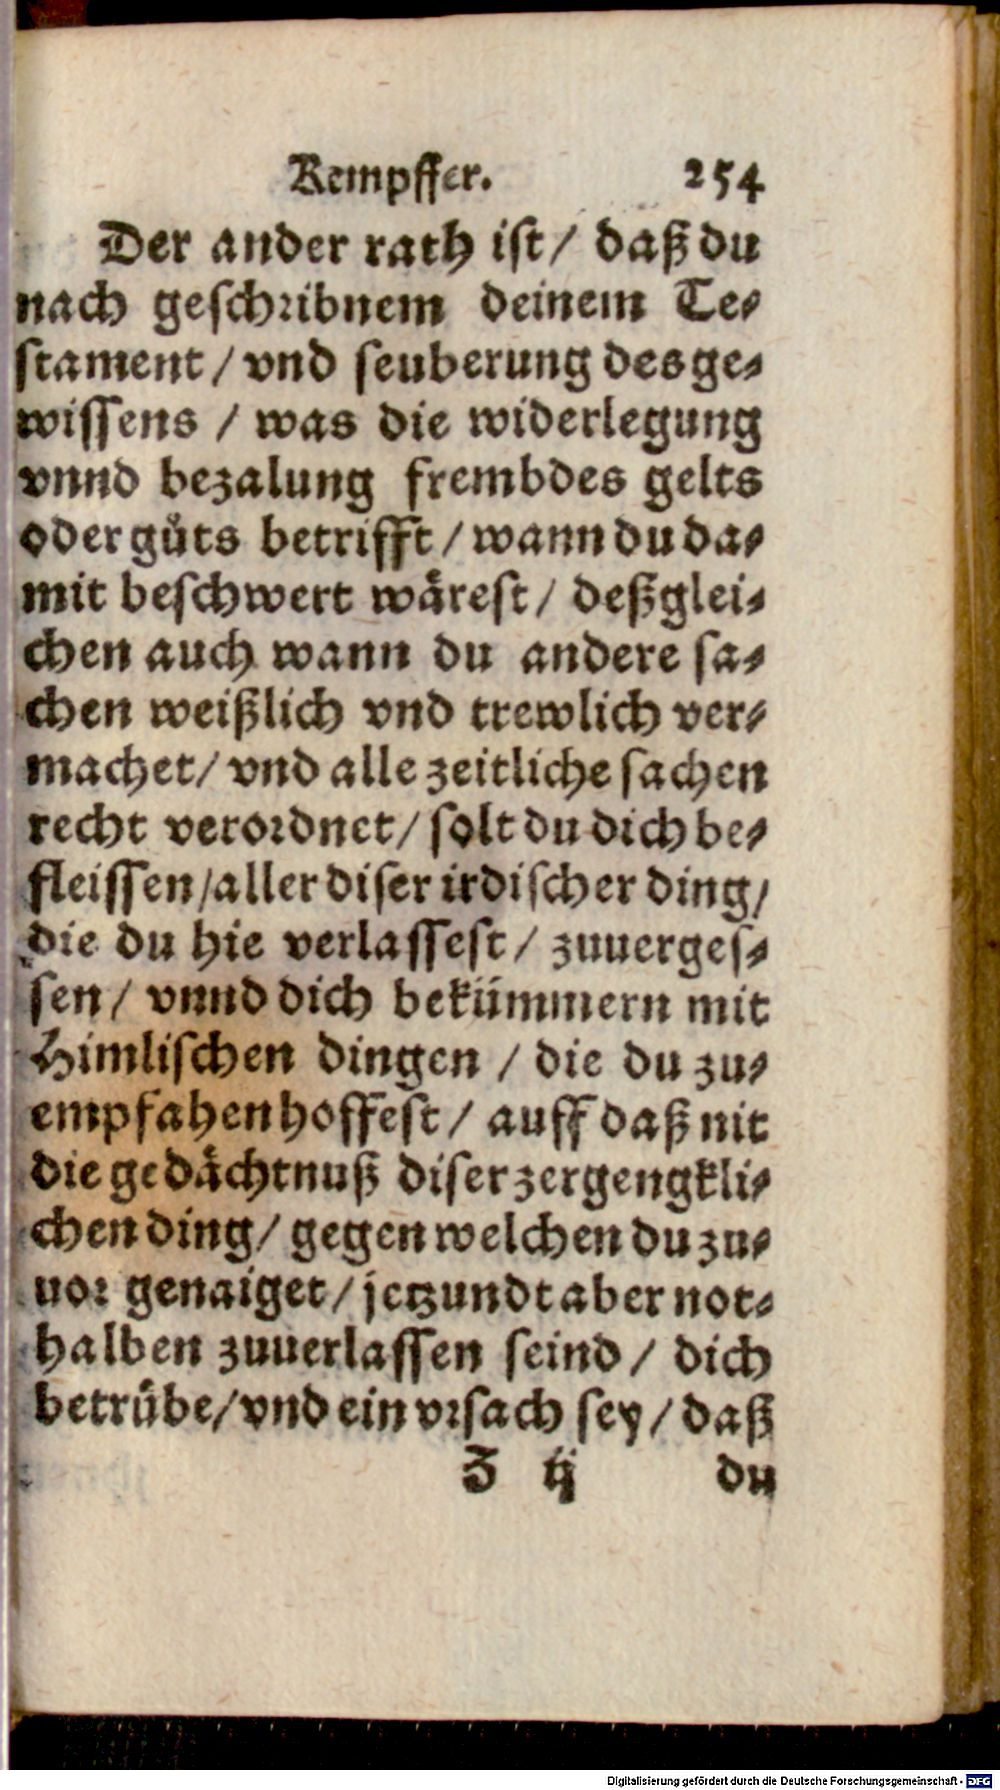 Kempffer. 254
Der ander rath ist / daß du
nach geschribnem deinem Te-
stament / vnd seuberung des ge-
wissens / was die widerlegung
vnnd bezalung frembdes gelts
oder gůts betrifft / wann du da-
mit beschwert wårest / deßglei-
chen auch wann du andere sa-
chen weißlich vnd trewlich ver-
machet / vnd alle zeitliche sachen
recht verordnet / solt du dich be-
fleissen / aller diser irdischer ding /
die du hie verlassest / zuuerges-
sen / vnnd dich bekümmern mit
Himlischen dingen / die du zu-
empfahen hoffest / auff daß nit
die gedåchtnuß diser zergengkli-
chen ding / gegen welchen du zu-
uor genaiget / jetzundt aber not-
halben zuuerlassen seind / dich
betrübe / vnd ein vrsach sey / daß
Z ij du
Digitalisierung gefördert durch die Deutsche Forschungsgemeinschaft - DFG